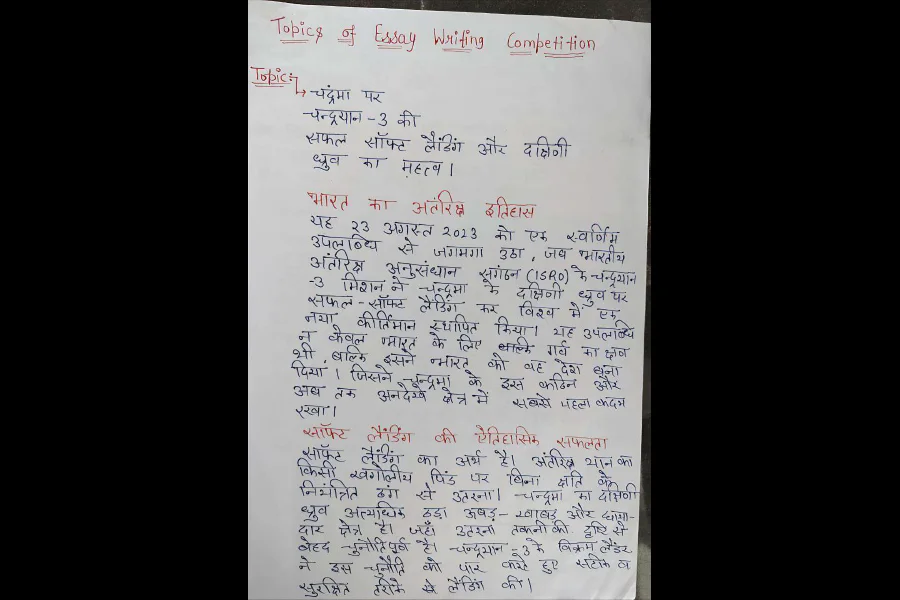 Topics of Essay Writing Competition
Topic:→ चंद्रमा पर
चन्द्रयान -3 की
सफल सॉफ्ट लैंडिंग और दक्षिणी
ध्रुव का महत्व।
भारत का अंतरिक्ष इतिहास
यह 23 अगस्त 2023 को एक स्वर्णिम
उपलब्धि से जगमगा उठा, जब भारतीय
अंतरिक्ष अनुसंधान संगठन (ISRO) के चन्द्रयान
-3 मिशन ने चन्द्रमा के दक्षिणी ध्रुव पर
सफल-सॉफ्ट लैंडिंग कर विश्व में एक
नया कीर्तिमान स्थापित किया। यह उपलब्धि
न केवल भारत के लिए गर्व का क्षण
थी, बल्कि इसने भारत को वह देश बना
दिया। जिसने चन्द्रमा के इस कठिन और
अब तक अनदेखे क्षेत्र में सबसे पहला कदम
रखा।
सॉफ्ट लैंडिंग की ऐतिहासिक सफलता
सॉफ्ट लैंडिंग का अर्थ है। अंतरिक्ष यान का
किसी खगोलीय पिंड पर बिना क्षति के
नियंत्रित ढंग से उतरना। चन्द्रमा का दक्षिणी
ध्रुव अत्यधिक ठंडा ऊबड़-खाबड़ और छाया-
दार क्षेत्र है। जहाँ उतरना तकनीकी दृष्टि से
बेहद चुनौतिपूर्व है। चन्द्रयान -3 के विक्रम लैंडर
ने इस चुनौति को पार करते हुए सटीक व
सुरक्षित तरीके से लैंडिंग की।